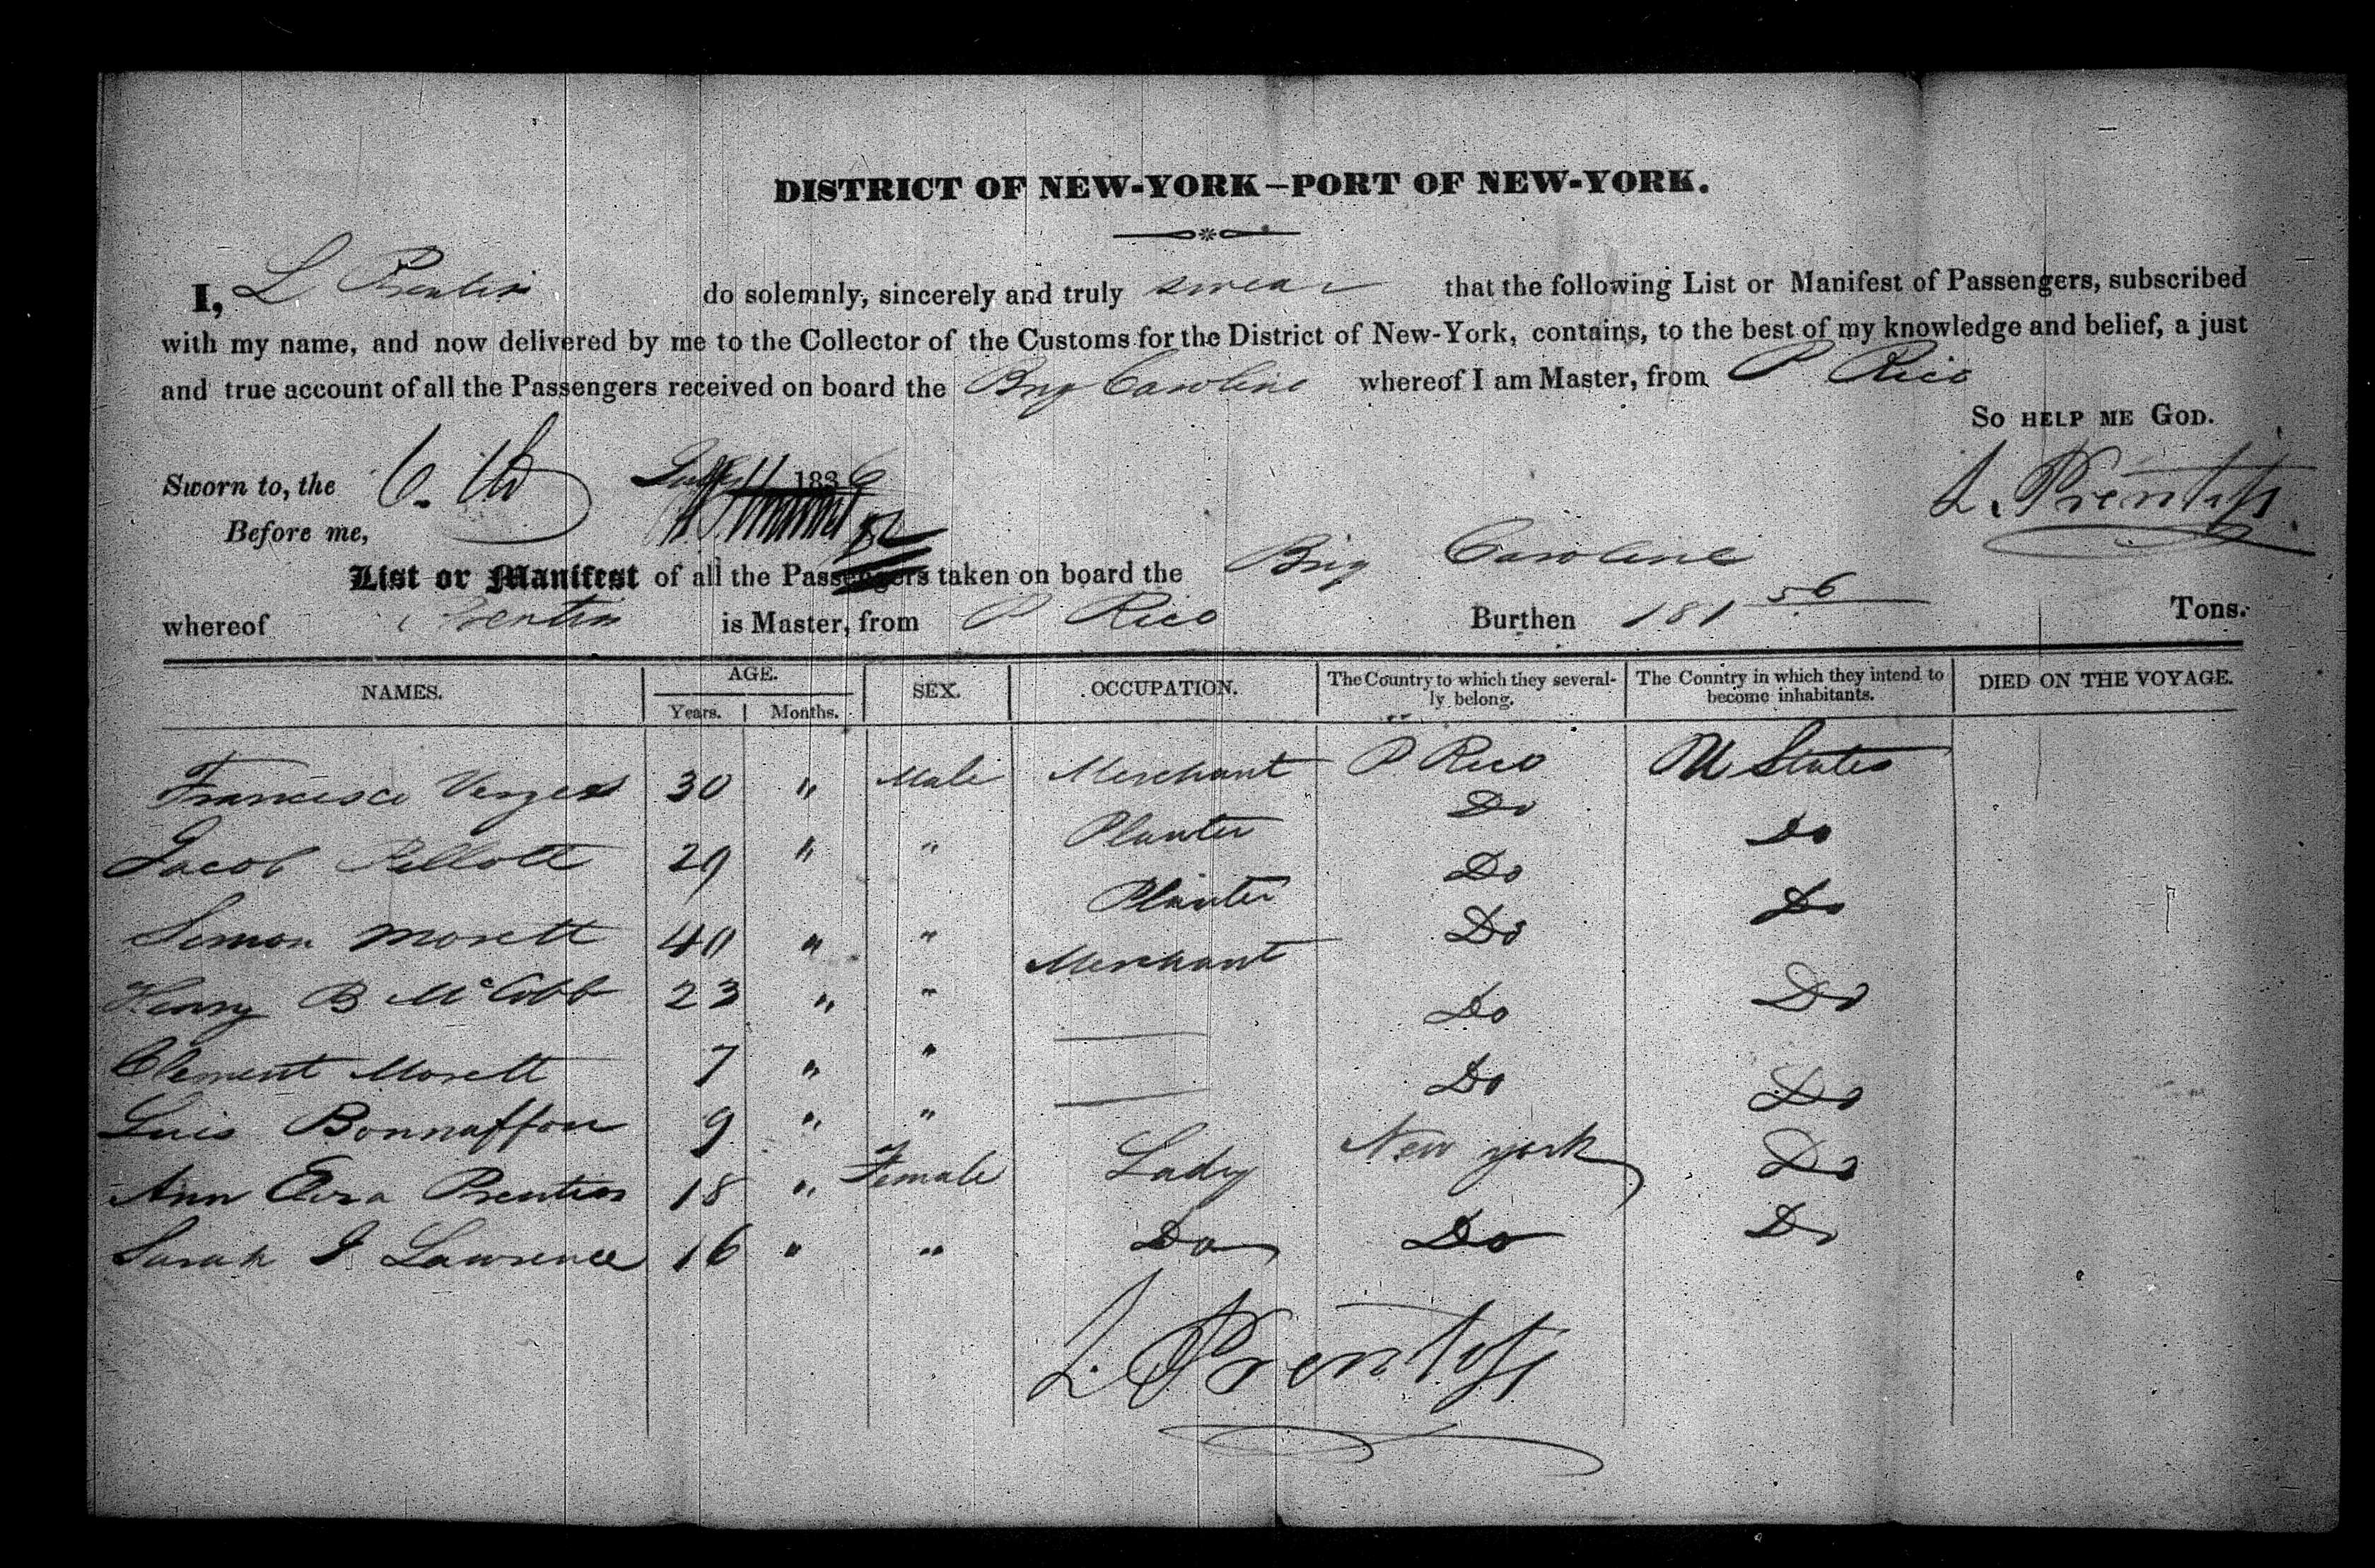 DISTRICT OF NEW-YORK—PORT OF NEW-YORK.
I, L Prentiss do solemnly, sincerely and truly swear that the following List or Manifest of Passengers, subscribed
with my name, and now delivered by me to the Collector of the Customs for the District of New-York, contains, to the best of my knowledge and belief, a just
and true account of all the Passengers received on board the Brig Caroline whereof I am Master, from P Rico
So HELP ME GOD.
Sworn to, the 6. th July 1836
L. Prentiss
Before me,
List or Manifest of all the Passengers taken on board the Brig Caroline
whereof Prentiss is Master, from P Rico Burthen 181 56 Tons.
NAMES. AGE. SEX. OCCUPATION. The Country to which they several- The Conntry in which they intend to DIED ON THE VOYAGE.
Years. Months. ly belong. become inhabitants.
Francisco Verges 30 " Male Merchant P. Rico U States
Jacob Pellott 29 " " Planter Do Do
Simon Morett 40 " " Planter Do Do
Henry B McCobb 23 " " Merchant Do Do
Clement Morett 7 " " — Do Do
Luis Bonnaffon 9 " " — Do Do
Ann Prentiss 18 " Female Lady New york Do
Sarah J Lawrence 16 " " Do Do
L. Prentiss